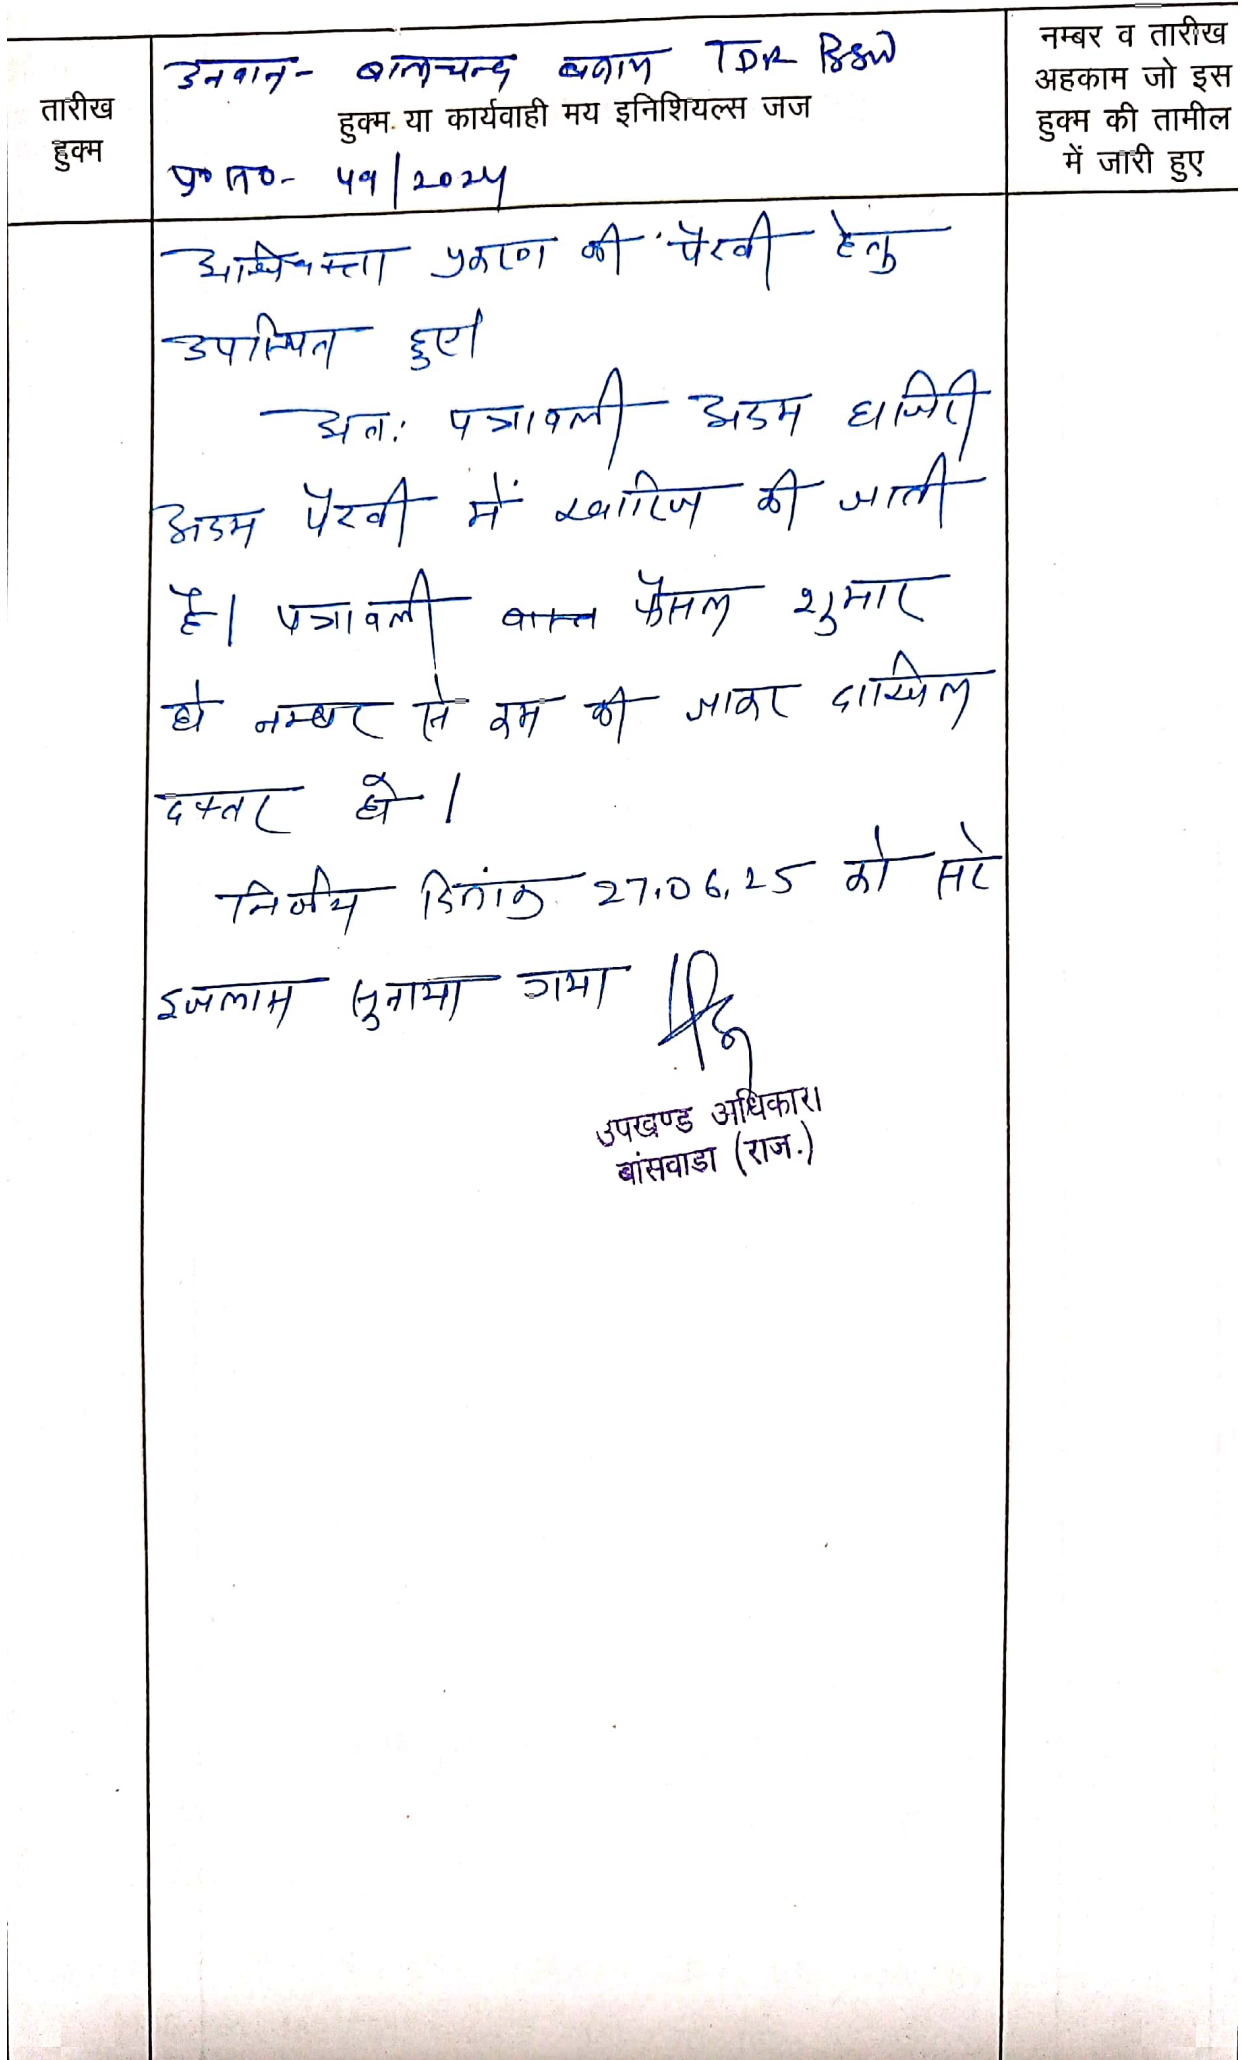 उनवान- बालचन्द बनाम TDR BSW
तारीख हुक्म
हुक्म या कार्यवाही मय इनिशियल्स जज
नम्बर व तारीख
अहकाम जो इस
हुक्म की तामील
में जारी हुए
प्र० न०- 59/2024
अधिवक्ता प्रकरण की पैरवी हेतु
उपस्थित हुए।
अतः पत्रावली अदम हाजिरी
अदम पैरवी में खारिज की जाती
है। पत्रावली फैसल शुमार
हो नम्बर से कम की जाकर दाखिल
दफ्तर हो।
निर्णय दिनांक 27.06.25 को सरे
इजलास सुनाया गया
उपखण्ड अधिकारी
बांसवाडा (राज.)